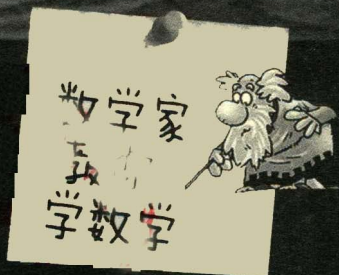 数学家
教你
学数学